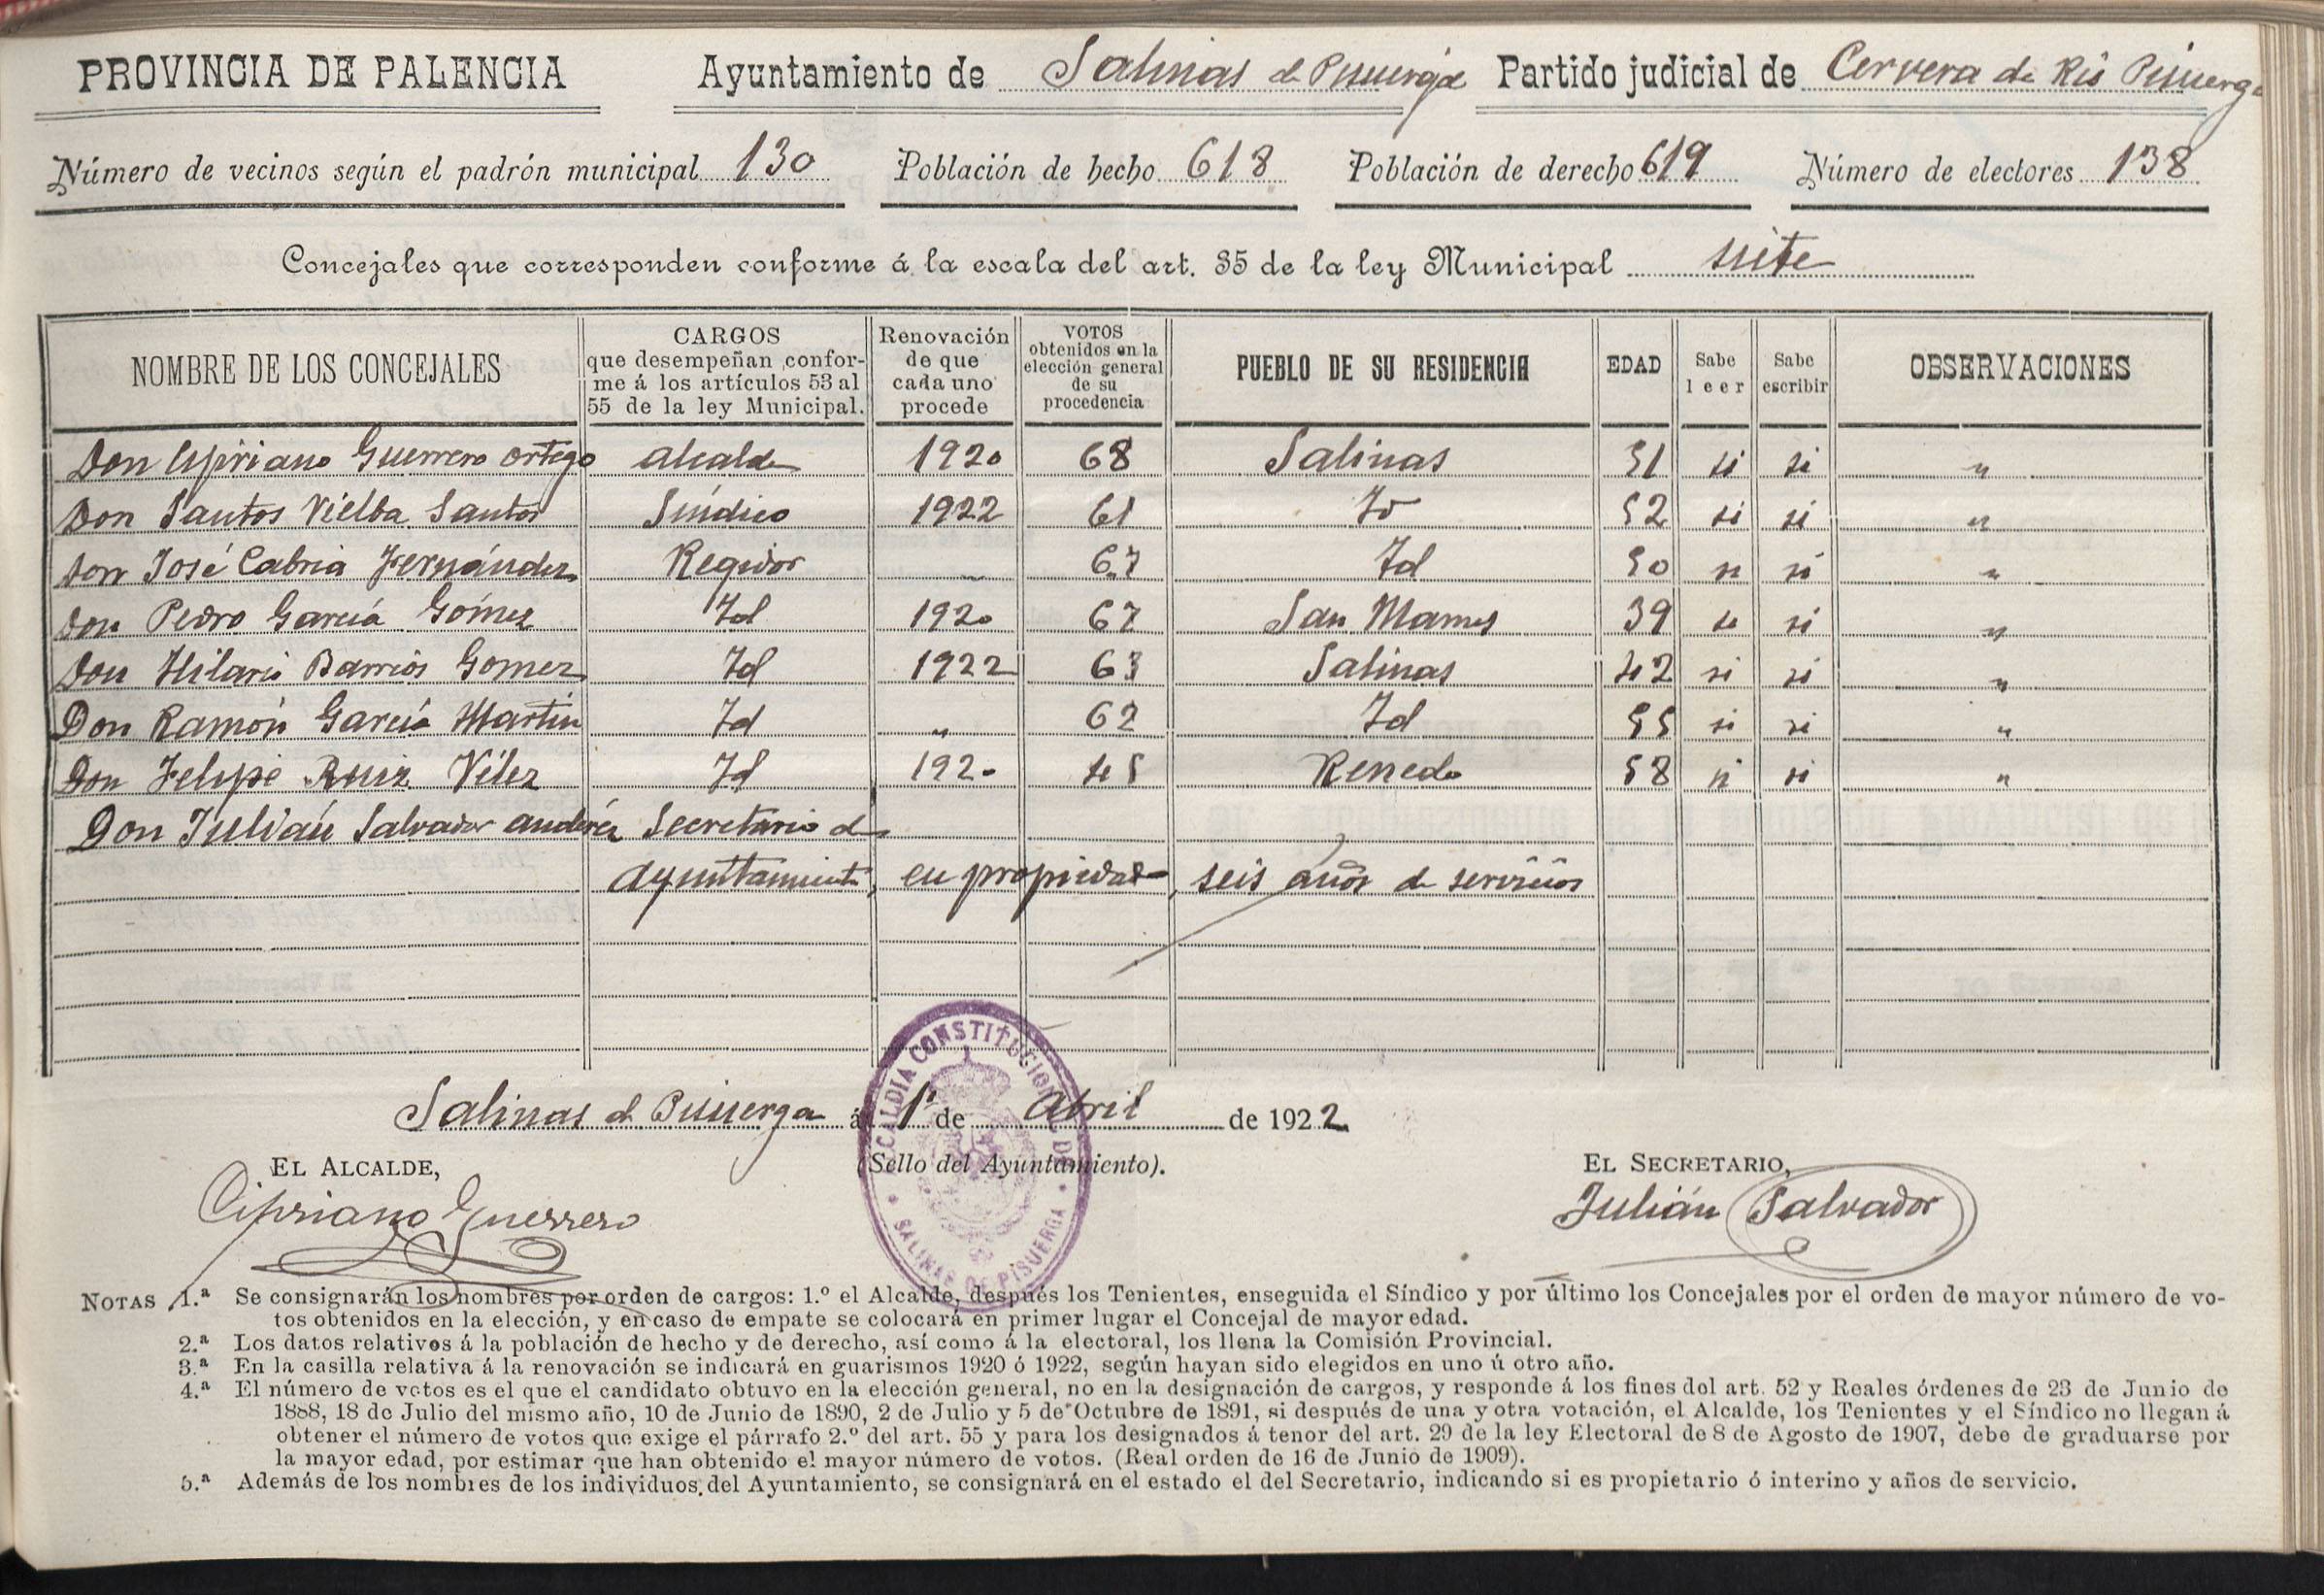 PROVINCIA DE PALENCIA Ayuntamiento de Salinas de Pisuerga Partido judicial de Cervera de Rio Pisuerga
Número de vecinos según el padrón municipal 130 Población de hecho 618 Población de derecho 619 Número de electores 138
Concejales que corresponden conforme á la escala del art. 35 de la ley Municipal siete
NOMBRE DE LOS CONCEJALES
CARGOS
que desempeñan confor-
me á los artículos 53 al
55 de la ley Municipal.
Renovación
de que
cada uno
procede
VOTOS
obtenidos en la
elección general
de su
procedencia
PUEBLO DE SU RESIDENCIA
EDAD
Sabe
leer
Sabe
escribir
OBSERVACIONES
Don Cipriano Guerrero Ortego Alcalde 1920 68 Salinas 51 si si "
Don Santos Vielba Santos Síndico 1922 61 Id 52 si si "
Don José Cabria Fernández Regidor " 67 Id 50 si si "
Don Pedro García Gómez Id 1920 67 San Mames 39 si si "
Don Hilario Barrios Gomez Id 1922 63 Salinas 42 si si "
Don Ramón García Martín Id " 62 Id 55 si si "
Don Felipe Ruiz Vélez Id 1920 45 Renedo 58 si si "
Don Julián Salvador Andrés Secretario de
Ayuntamiento, en propiedad, seis años de servicios
Salinas de Pisuerga á 1º de Abril de 1922
ALCALDIA CONSTITUCIONAL DE
SALINAS DE PISUERGA
EL ALCALDE, (Sello del Ayuntamiento). EL SECRETARIO,
Cipriano Guerrero Julián Salvador
NOTAS 1.ª Se consignarán los nombres por orden de cargos: 1.º el Alcalde, después los Tenientes, enseguida el Síndico y por último los Concejales por el orden de mayor número de vo-
tos obtenidos en la elección, y en caso de empate se colocará en primer lugar el Concejal de mayor edad.
2.ª Los datos relativos á la población de hecho y de derecho, así como á la electoral, los llena la Comisión Provincial.
3.ª En la casilla relativa á la renovación se indicará en guarismos 1920 ó 1922, según hayan sido elegidos en uno ú otro año.
4.ª El número de votos es el que el candidato obtuvo en la elección general, no en la designación de cargos, y responde á los fines del art. 52 y Reales órdenes de 23 de Junio de
1888, 18 de Julio del mismo año, 10 de Junio de 1890, 2 de Julio y 5 de Octubre de 1891, si después de una y otra votación, el Alcalde, los Tenientes y el Síndico no llegan á
obtener el número de votos que exige el párrafo 2.º del art. 55 y para los designados á tenor del art. 29 de la ley Electoral de 8 de Agosto de 1907, debe de graduarse por
la mayor edad, por estimar que han obtenido el mayor número de votos. (Real orden de 16 de Junio de 1909).
5.ª Además de los nombres de los individuos del Ayuntamiento, se consignará en el estado el del Secretario, indicando si es propietario ó interino y años de servicio.